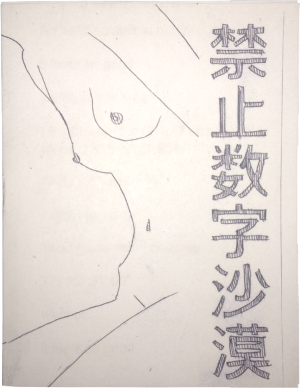 禁止数字沙漠